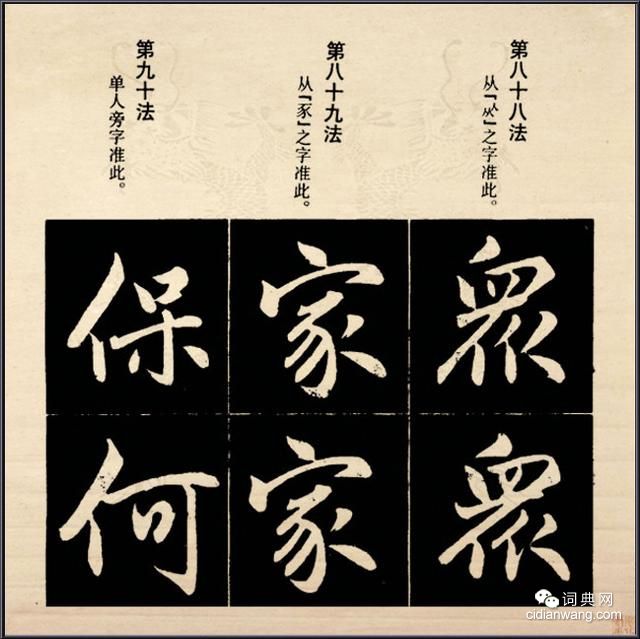 第八十八法
从「㐺」之字准此。
第八十九法
从「豕」之字准此。
第九十法
单人旁字准此。
眾
眾
家
家
保
何
词典网
cidianwang.com